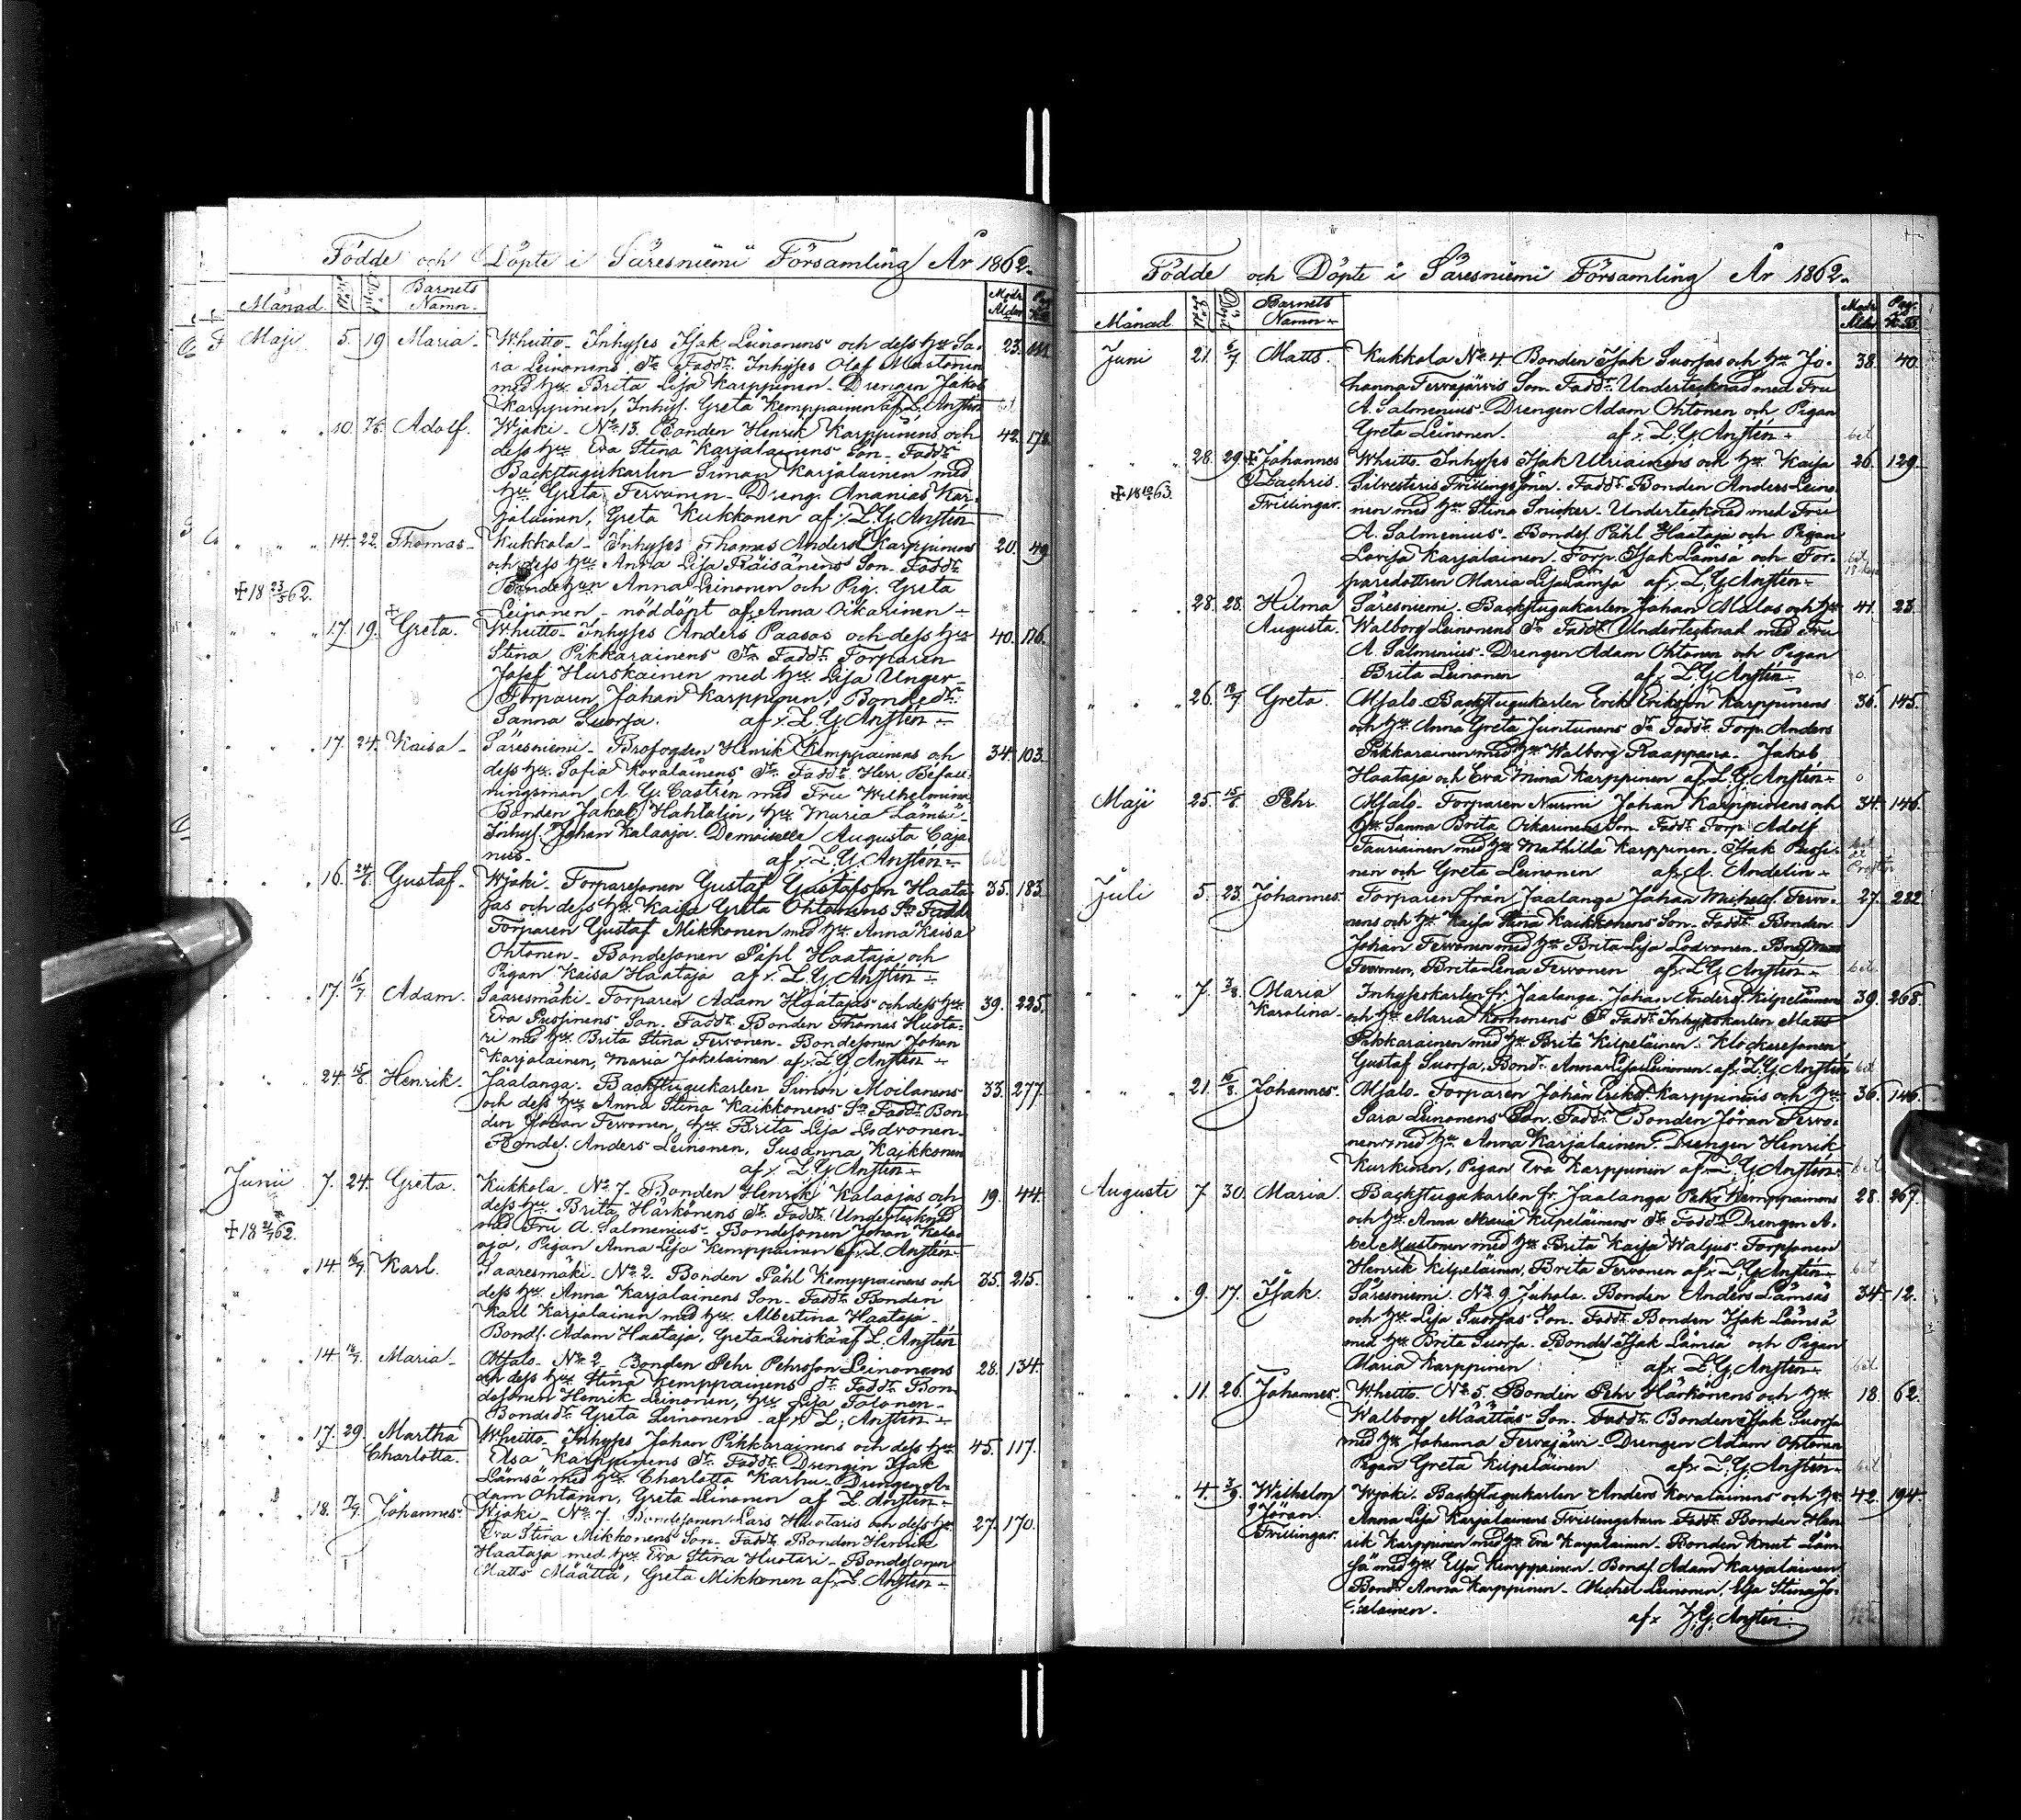 Födde och Döpte i Säresniemi Församling År 1862.
Månad. Född Döpt Barnets Namn. Modr. Ålder Pag. K.B.
Maji 5. 19 Maria. Whutto. Inhyses Isak Leinonens och dess hu. Sa- 23.
ra Leinonens Dr. Faddr. Inhyses Olof Mustonen
med hu. Brita Lisa Karppinen. Drengen Jakob
Karppinen, Inhys. Greta Kemppainen af L. Anstén
10. Adolf. Wjoki. No. 13. Bonden Henrik Karppinens och 42. 178
dess hu. Eva Stina Karjalainens Son. Faddr.
Backstugukarlen Simon Karjalainen med
hu. Greta Tervonen. Dreng. Ananias Kar-
jalainen, Greta Kukkonen af L. G. Anstén
14. 22. Thomas. Kukkola. Inhyses Thomas Anders. Karppinens 20. 49
och dess hu. Anna Lisa Räisänens Son. Faddr.
✝ 18 23/5 62. Bondehun Anna Leinonen och Pig. Greta
Leinonen. nöddöpt af Anna Oikarinen.
17. 19. ✝ Greta. Whutto. Inhyses Anders Paasos och dess hu. 40. 116.
Stina Pikkarainens Dr. Faddr. Torparen
Josef Hurskainen med hu. Lisa Unger.
Torparen Johan Karppinen, Bondedr.
Sanna Suorsa. af L. G. Anstén
17. 24. Kaisa. Säresniemi. Brofogden Henrik Kemppainens och 34. 103.
dess hu. Sofia Kovalainens Dr. Faddr. Herr Befall-
ningsman A. G. Castrén med Fru Wilhelmina
Bonden Jakob Hahtalin, hu. Maria Lämsä.
Inhys. Johan Kalaoja. Demoiselle Augusta Caja-
nus. af L. G. Anstén
16. 24/6. Gustaf. Wjoki. Torparesonen Gustaf Gustafsson Haata- 35. 183.
jas och dess hu. Kaisa Greta Ohtonens Sn. Faddr.
Torparen Gustaf Mikkonen med hu. Anna Kaisa
Ohtonen. Bondesonen Påhl Haataja och
Pigan Kaisa Haataja af L. G. Anstén
17. 16/7. Adam. Saaresmäki. Torparen Adam Haatajas och dess hu. 39. 225.
Eva Pussinens Son. Faddr. Bonden Thomas Huota-
ri med hu. Brita Stina Tervonen. Bondesonen Johan
Karjalainen, Maria Jokelainen af L. G. Anstén
24. 15/6. Henrik. Jaalanga. Backstugukarlen Simon Moilanens 33. 277.
och dess hu. Anna Stina Kaikkonens Sn. Faddr. Bon-
den Johan Tervonen, hu. Brita Lisa Lodvonen.
Bondes. Anders Leinonen, Susanna Kaikkonen
af L. G. Anstén
Junii 7. 24. Greta. Kukkola. No. 7. Bonden Henrik Kalaojas och 19. 44.
dess hu. Brita Härkönens Dr. Faddr. Undertecknad
✝ 18 21/7 62. med Fru A. Salmenius. Bondesonen Johan Kala-
oja, Pigan Anna Lisa Kemppainen af L. Anstén.
14. 16/7 Karl. Saaresmäki. No. 2. Bonden Påhl Kemppainens och 35. 215.
dess hu. Anna Karjalainens Son. Faddr. Bonden
Karl Karjalainen med hu. Albertina Haataja.
Bonds. Adam Haataja, Greta af L. Anstén
14. Maria. Alasalo. No. 2. Bonden Pehr Pehrsson Leinonens 28. 134.
och dess hu. Stina Kemppainens Dr. Faddr. Bon-
desonen Henrik Leinonen, hu. Lisa Tolonen.
Bondedr. Greta Leinonen af L. Anstén
17. 29. Martha Charlotta. Whutto. Inhyses Johan Pikkarainens och dess hu. 45. 117.
Elsa Karppinens Dr. Faddr. Drengen Isak
Lämsä med hu. Charlotta Karhu. Drengen A-
dam Ohtonen, Greta Leinonen af L. Anstén
18. Johannes. Wjoki. No. 7. Bondesonen Lars Huotaris och dess hu. 27. 170.
Eva Stina Mikkonens Son. Faddr. Bonden Henrik
Haataja med hu. Eva Stina Huotari. Bondesonen
Matts Määttä, Greta Mikkonen af L. Anstén
Födde och Döpte i Säresniemi Församling År 1862.
Månad. Född Döpt Barnets Namn. Modr. Ålder Pag. K.B.
Juni 21. 6/7 Matts. Kukkola No. 4. Bonden Isak Suorsas och hu. Jo- 38. 40.
hanna Tervajärvis Son. Faddr. Undertecknad med Fru
A. Salmenius. Drengen Adam Ohtonen och Pigan
Greta Leinonen. af L. G. Anstén
28. 29. ✝ Johannes Whutto. Inhyses Isak Uriainens och hu. Kaisa 26. 129.
✝ 18 63. Zachris. Silvesteris Trillingssöner. Faddr. Bonden Anders Leino-
Trillingar. nen med hu. Stina Snicker. Undertecknad med Fru
A. Salmenius. Bondes. Påhl Haataja och Pigan
Lovisa Karjalainen. Torp. Isak Lämsä och Tor-
paredottren Maria Lisa Lämsä af L. G. Anstén
28. 28. Hilma Säresniemi. Backstugukarlen Johan Malos och hu. 41. 23.
Augusta. Walborg Leinonens Dr. Faddr. Undertecknad med Fru
A. Salmenius. Drengen Adam Ohtonen och Pigan
Brita Leinonen af L. G. Anstén
26. Greta. Alasalo. Backstugukarlen Erik Eriksson Karppinens 35. 145.
och hu. Anna Greta Juntunens Dr. Faddr. Torp. Anders
Pikkarainen med hu. Walborg Raappana. Jakob
Haataja och Eva Stina Karppinen af L. G. Anstén
Maji 25. 15/6. Pehr. Alasalo. Torparen Nurmi Johan Karppinens och 34. 146.
hu. Sanna Brita Oikarinens Son. Faddr. Torp. Adolf
Tauriainen med hu. Mathilda Karppinen. Isak Pussi-
nen och Greta Leinonen af A. Andelin
Juli 5. 23. Johannes. Torparen från Jaalanga Johan Michels. Tervo- 27. 282.
nens och hu. Kaisa Stina Kaikkonens Son. Faddr. Bonden
Johan Tervonen med hu. Brita Lisa Lodvonen.
Tervonen, Brita Lena Tervonen af L. G. Anstén
7. 3/8. Maria Inhyseskarlen fr. Jaalanga Johan Anders. Kilpeläinens 39. 268.
Karolina. och hu. Maria Korhonens Dr. Faddr. Inhyseskarlen Matts
Pikkarainen med hu. Brita Kilpeläinen. Klockaresonen
Gustaf Suorsa, Bondr. Anna Lisa Leinonen. af L. G. Anstén
21. 16/8. Johannes. Alasalo. Torparen Johan Eriks. Karppinens och hu. 36. 146.
Sara Leinonens Son. Faddr. Bonden Jöran Tervo-
nen med hu. Anna Karjalainen. Drengen Henrik
Kurkinen, Pigan Eva Karppinen af L. G. Anstén
Augusti 7. 30. Maria. Backstugukarlen fr. Jaalanga Pehr Kemppainens 28. 267.
och hu. Anna Maria Kilpeläinens Dr. Faddr. Drengen A-
bel Mustonen med hu. Brita Kaisa Waljus. Torpsonen
Henrik Kilpeläinen, Brita Tervonen af L. G. Anstén
9. 17. Isak. Säresniemi. No. 9. Juhola. Bonden Anders Lämsäs 34. 12.
och hu. Lisa Suorsas Son. Faddr. Bonden Isak Lämsä
med hu. Brita Suorsa. Bondes. Isak Lämsä och Pigan
Maria Karppinen af L. G. Anstén
11. 26. Johannes. Whutto. No. 5. Bonden Pehr Härkönens och hu. 18. 62.
Walborg Määttäs Son. Faddr. Bonden Isak Suorsa
med hu. Johanna Tervajärvi. Drengen Adam Ohtonen
Pigan Greta Kilpeläinen af L. G. Anstén
4. 3/9. Wilhelm Wjoki. Backstugukarlen Anders Kovalainens och hu. 42. 194.
Jöran. Anna Lisa Karjalainens Trillingabarn. Faddr. Bonden Hen-
Trillingar. rik Karppinen med hu. Eva Karjalainen. Bonden Knut Läm-
sä med hu. Elsa Kemppainen. Bonds. Adam Karjalainen
Bondr. Anna Karppinen. Michel Leinonen, Elsa Stina Jo-
kelainen. af L. G. Anstén.